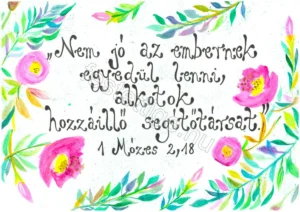 „Nem jó az embernek
egyedül lenni,
alkotok
hozzáillő segítőtársat.”
1 Mózes 2,18